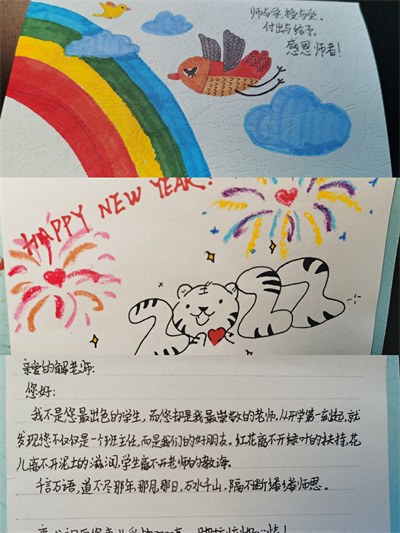 师与学,授与受,
付出与给予,
感恩师者!
HAPPY NEW YEAR!
2022
亲爱的解老师:
您好:
我不是您最出色的学生,而您却是我最崇敬的老师。从开学第一刻起,就
发现您不仅仅是一个班主任,而是我们的好朋友。红花离不开绿叶的扶持,花
儿离不开泥土的滋润,学生离不开老师的教海。
千言万语,道不尽那年、那月、那日,万水千山,隔不断缕缕师恩。